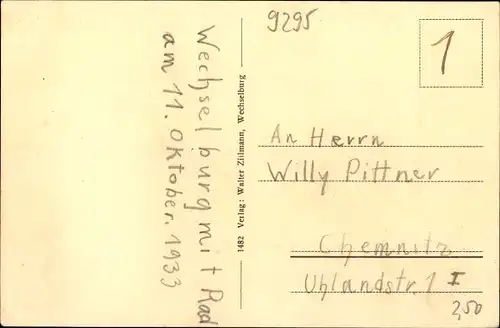 9295
1
Wechselburg mit Rad
am 11. Oktober. 1933
1482 Verlag: Walter Zillmann, Wechselburg
An Herrn
Willy Pittner
Chemnitz
Uhlandstr. 1 I
2,50